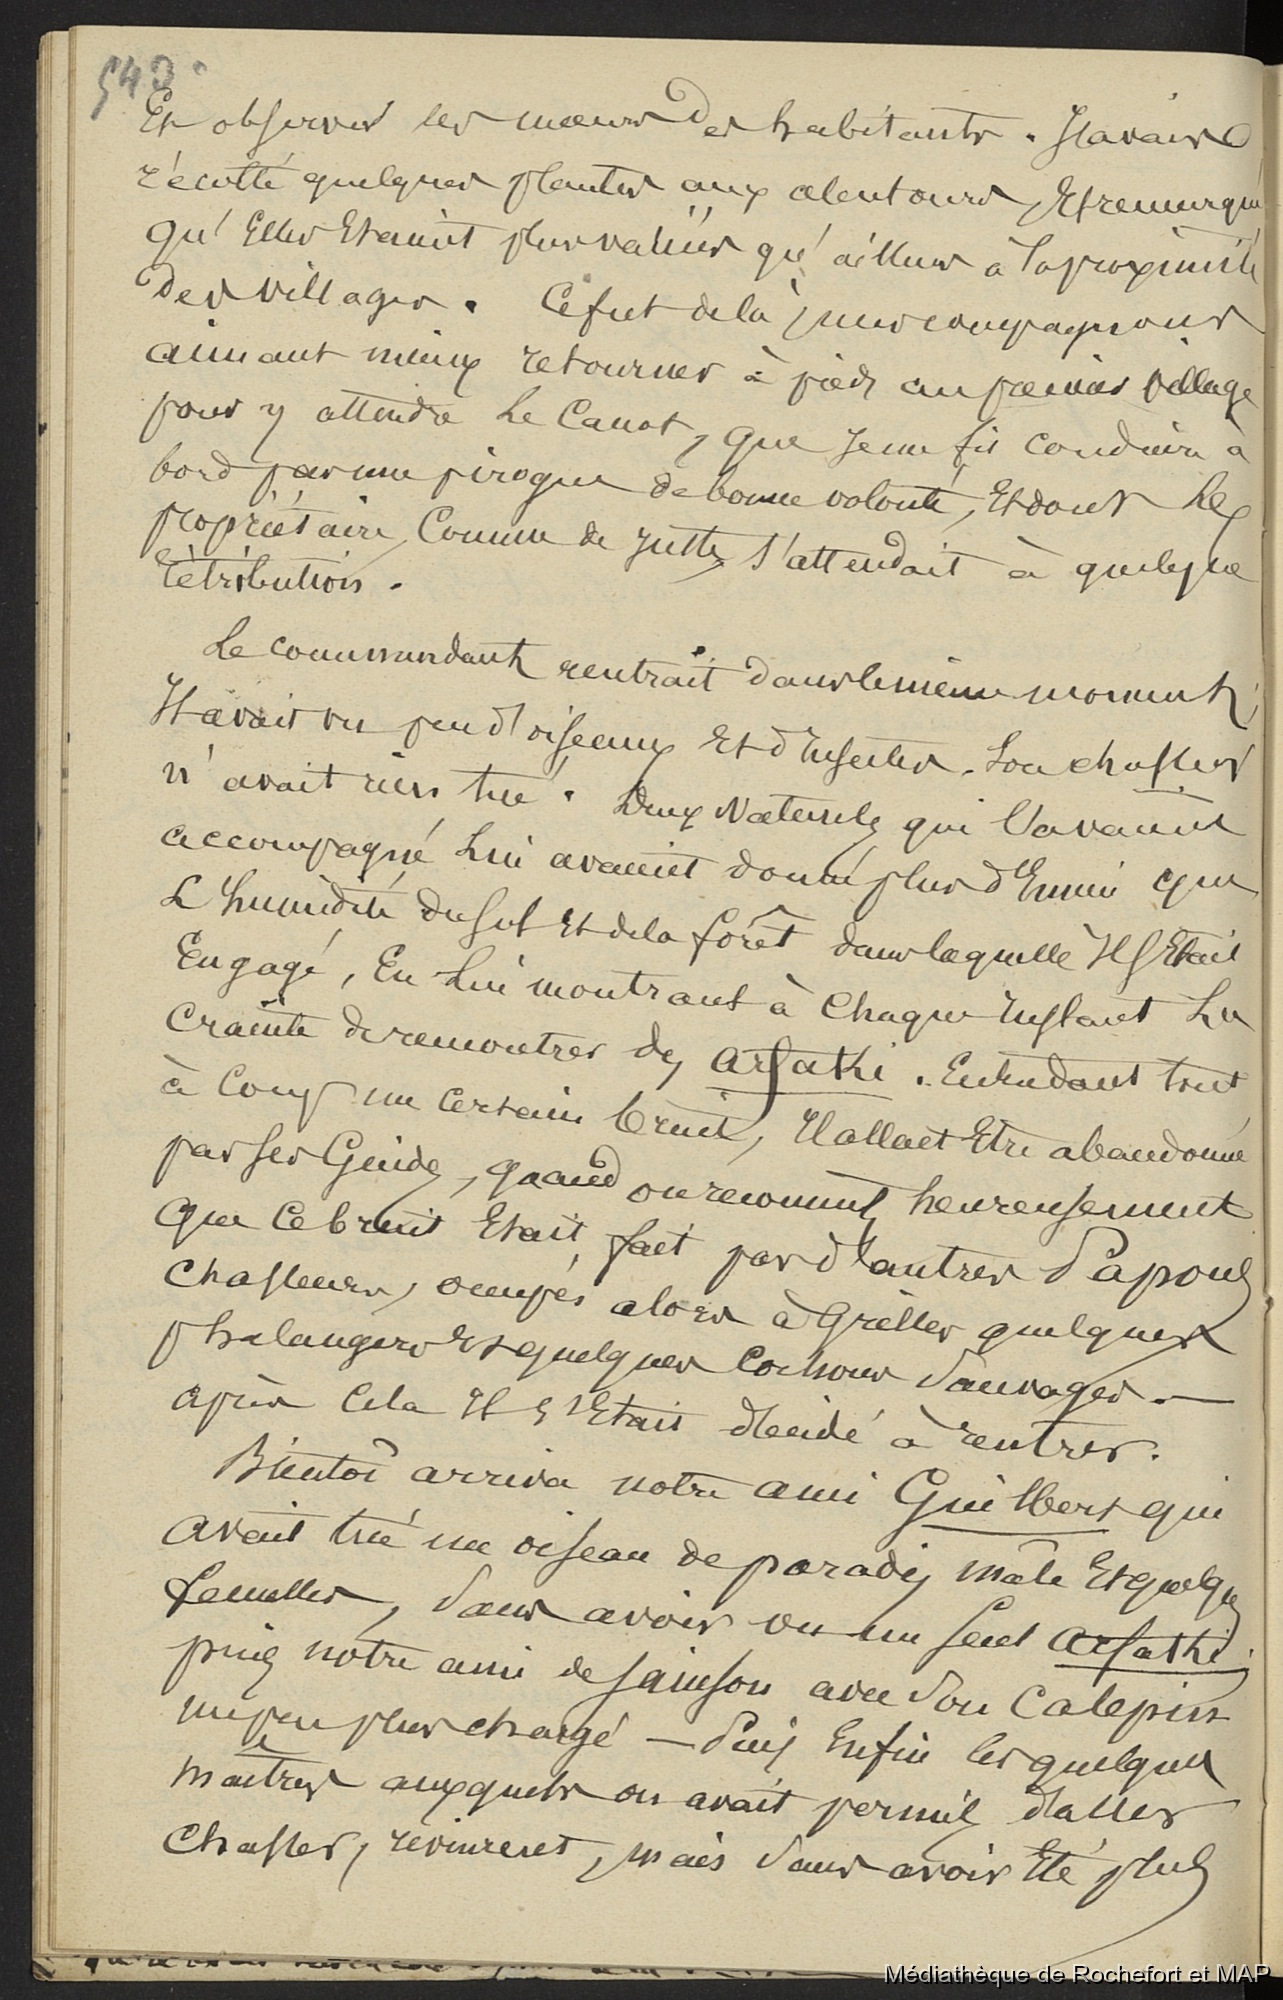 543
Et observer les mœurs des habitants. J'avais
récolté quelques plantes aux alentours, Et remarqué
qu'Elles Etaient plus variées qu'ailleurs à la proximité
des villages. Ce fut de là, mes compagnons
aimant mieux retourner à pied au premier village
pour y attendre Le Canot, que je me fis conduire à
bord par une pirogue de bonne volonté, Et dont Le
propriétaire, Comme de juste, s'attendait à quelque
rétribution.
Le commandant rentrait dans le même moment,
Il avait vu peu d'oiseaux Et d'Insectes. Son chasseur
n'avait rien tué. Deux Naturels qui l'avaient
accompagné Lui avaient donné plus d'Ennui que
L'humidité du sol Et de la forêt dans laquelle Il s'Etait
Engagé, En Lui montrant à Chaque Instant La
Crainte de rencontrer des Arfakki. Entendant tout
à Coup un Certain bruit, Il allait Etre abandonné
par ses Guides, quand on reconnut heureusement
que Ce bruit Etait fait par d'autres Papous
Chasseurs, occupés alors à Griller quelques
phalangers Et quelques Cochons Sauvages. —
après Cela Il s'Etait décidé à rentrer.
Bientôt arriva notre ami Guilbert qui
avait tué un oiseau de paradis mâle Et quelques
femelles, Sans avoir vu un seul Arfakki
puis notre ami de Sainson avec Son Calepin
un peu plus chargé — Puis Enfin les quelques
maîtres auxquels on avait permis d'aller
Chasser, revinrent, mais Sans avoir Eté plus
Médiathèque de Rochefort et MAP